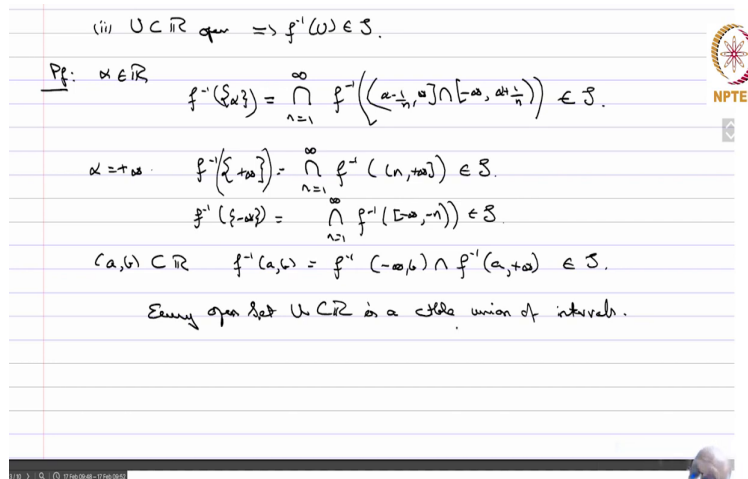 (ii) U ⊂ ℝ open => f⁻¹(U) ∈ S.
Pf: α ∈ ℝ
f⁻¹({α}) = ∞∩n=1 f⁻¹((α-1/n, ∞] ∩ [-∞, α+1/n)) ∈ S.
NPTEL
α = +∞ f⁻¹({+∞}) = ∞∩n=1 f⁻¹((n, +∞]) ∈ S.
f⁻¹({-∞}) = ∞∩n=1 f⁻¹([-∞, -n)) ∈ S
(a,b) ⊂ ℝ f⁻¹(a,b) = f⁻¹(-∞,b) ∩ f⁻¹(a,+∞) ∈ S.
Every open set U ⊂ ℝ is a ctble union of intervals.
1/10 17 Feb 09:48 - 17 Feb 09:52